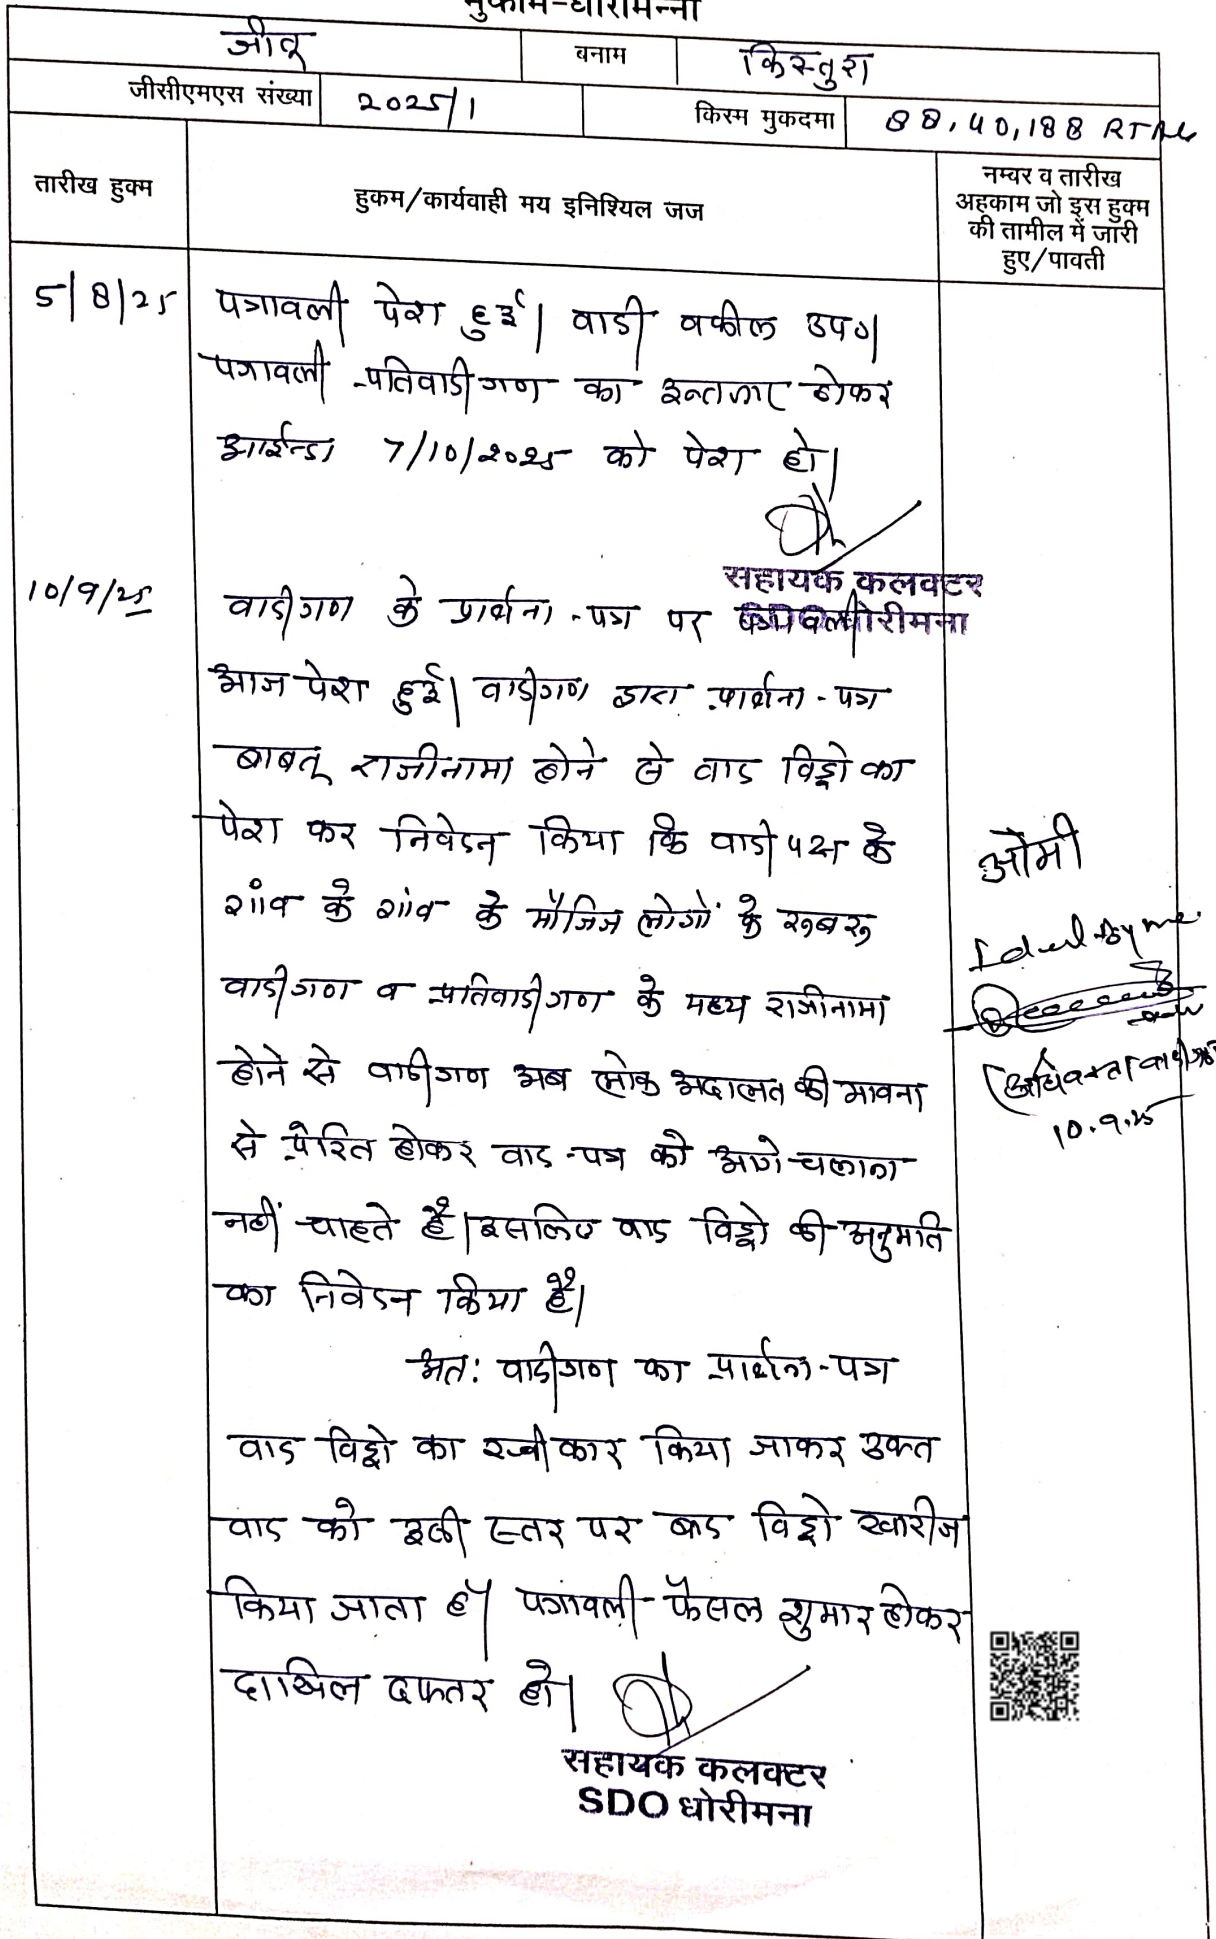 मुकाम-धोरीमन्ना
जीवू बनाम किस्तुरा
जीसीएमएस संख्या 2025/1 किस्म मुकदमा 88,40,188 RTAct
तारीख हुक्म
हुकम/कार्यवाही मय इनिश्यिल जज
नम्बर व तारीख
अहकाम जो इस हुक्म
की तामील में जारी
हुए/पावती
5/8/25 पत्रावली पेश हुई। वादी वकील उप०।
पत्रावली प्रतिवादीगण का इन्तजार होकर
आईन्दा 7/10/2025 को पेश हो।
सहायक कलक्टर
धोरीमना
10/9/25 वादीगण के प्रार्थना-पत्र पर पत्रावली
आज पेश हुई। वादीगण द्वारा प्रार्थना-पत्र
बाबत् राजीनामा होने से वाद विड्रो का
पेश कर निवेदन किया कि वादी पक्ष के
गांव के गांव के मौजिज लोगों के रुबरु
वादीगण व प्रतिवादीगण के मध्य राजीनामा
होने से वादीगण अब लोक अदालत की भावना
से प्रेरित होकर वाद-पत्र को आगे चलाना
नहीं चाहते है। इसलिए वाद विड्रो की अनुमति
का निवेदन किया है।
अत: वादीगण का प्रार्थना-पत्र
वाद विड्रो का स्वीकार किया जाकर उक्त
वाद को इसी स्तर पर बाद विड्रो खारीज
किया जाता है। पत्रावली फैसल शुमार होकर
दाखिल दफ्तर हो।
सहायक कलक्टर
SDO धोरीमना
ओमी
Ideal by me
(अधिवक्ता वादीगण)
10.9.25